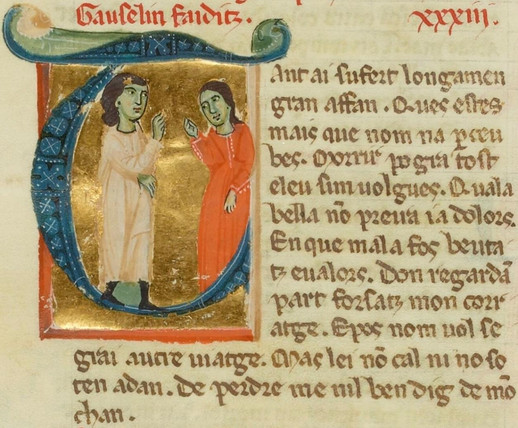 Gauselin faiditz. xxxiii.
Tant ai sufert longamen
gran affan. Q ues estes
mais que nom na perceu
bes. Morrir pogra tost
eleu sim uolgues. Q uala
bella nō preira ia dolors.
En que mala fos beuta
tz eualors. Don regardā
part forsatz mon corr
atge. E pos nom uol se
grai autre uiatge. Mas lei nō cal ni no so
ten adan. de perdre me nil ben dig de mō
chan.